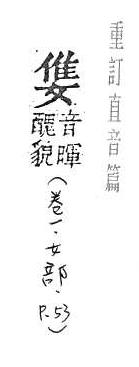 重訂直音篇
⿱隹女
音暉
醜貌
（卷一·女部·P.53）